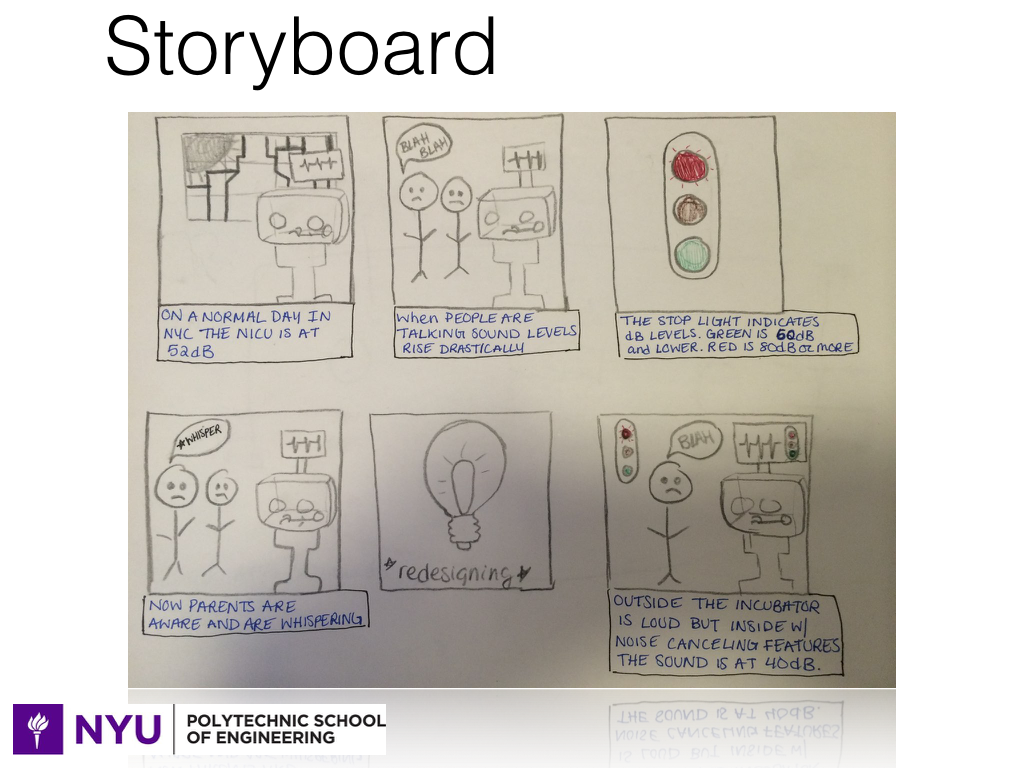 Storyboard
BLAH
BLAH
ON A NORMAL DAY IN
NYC THE NICU IS AT
52dB
When PEOPLE ARE
TALKING SOUND LEVELS
RISE DRASTICALLY
THE STOP LIGHT INDICATES
dB LEVELS. GREEN IS 60dB
and LOWER. RED IS 80dB or MORE
*WHISPER
NOW PARENTS ARE
AWARE AND ARE WHISPERING
*redesigning*
BLAH
OUTSIDE THE INCUBATOR
IS LOUD BUT INSIDE W/
NOISE CANCELING FEATURES
THE SOUND IS AT 40dB.
NYU
POLYTECHNIC SCHOOL
OF ENGINEERING